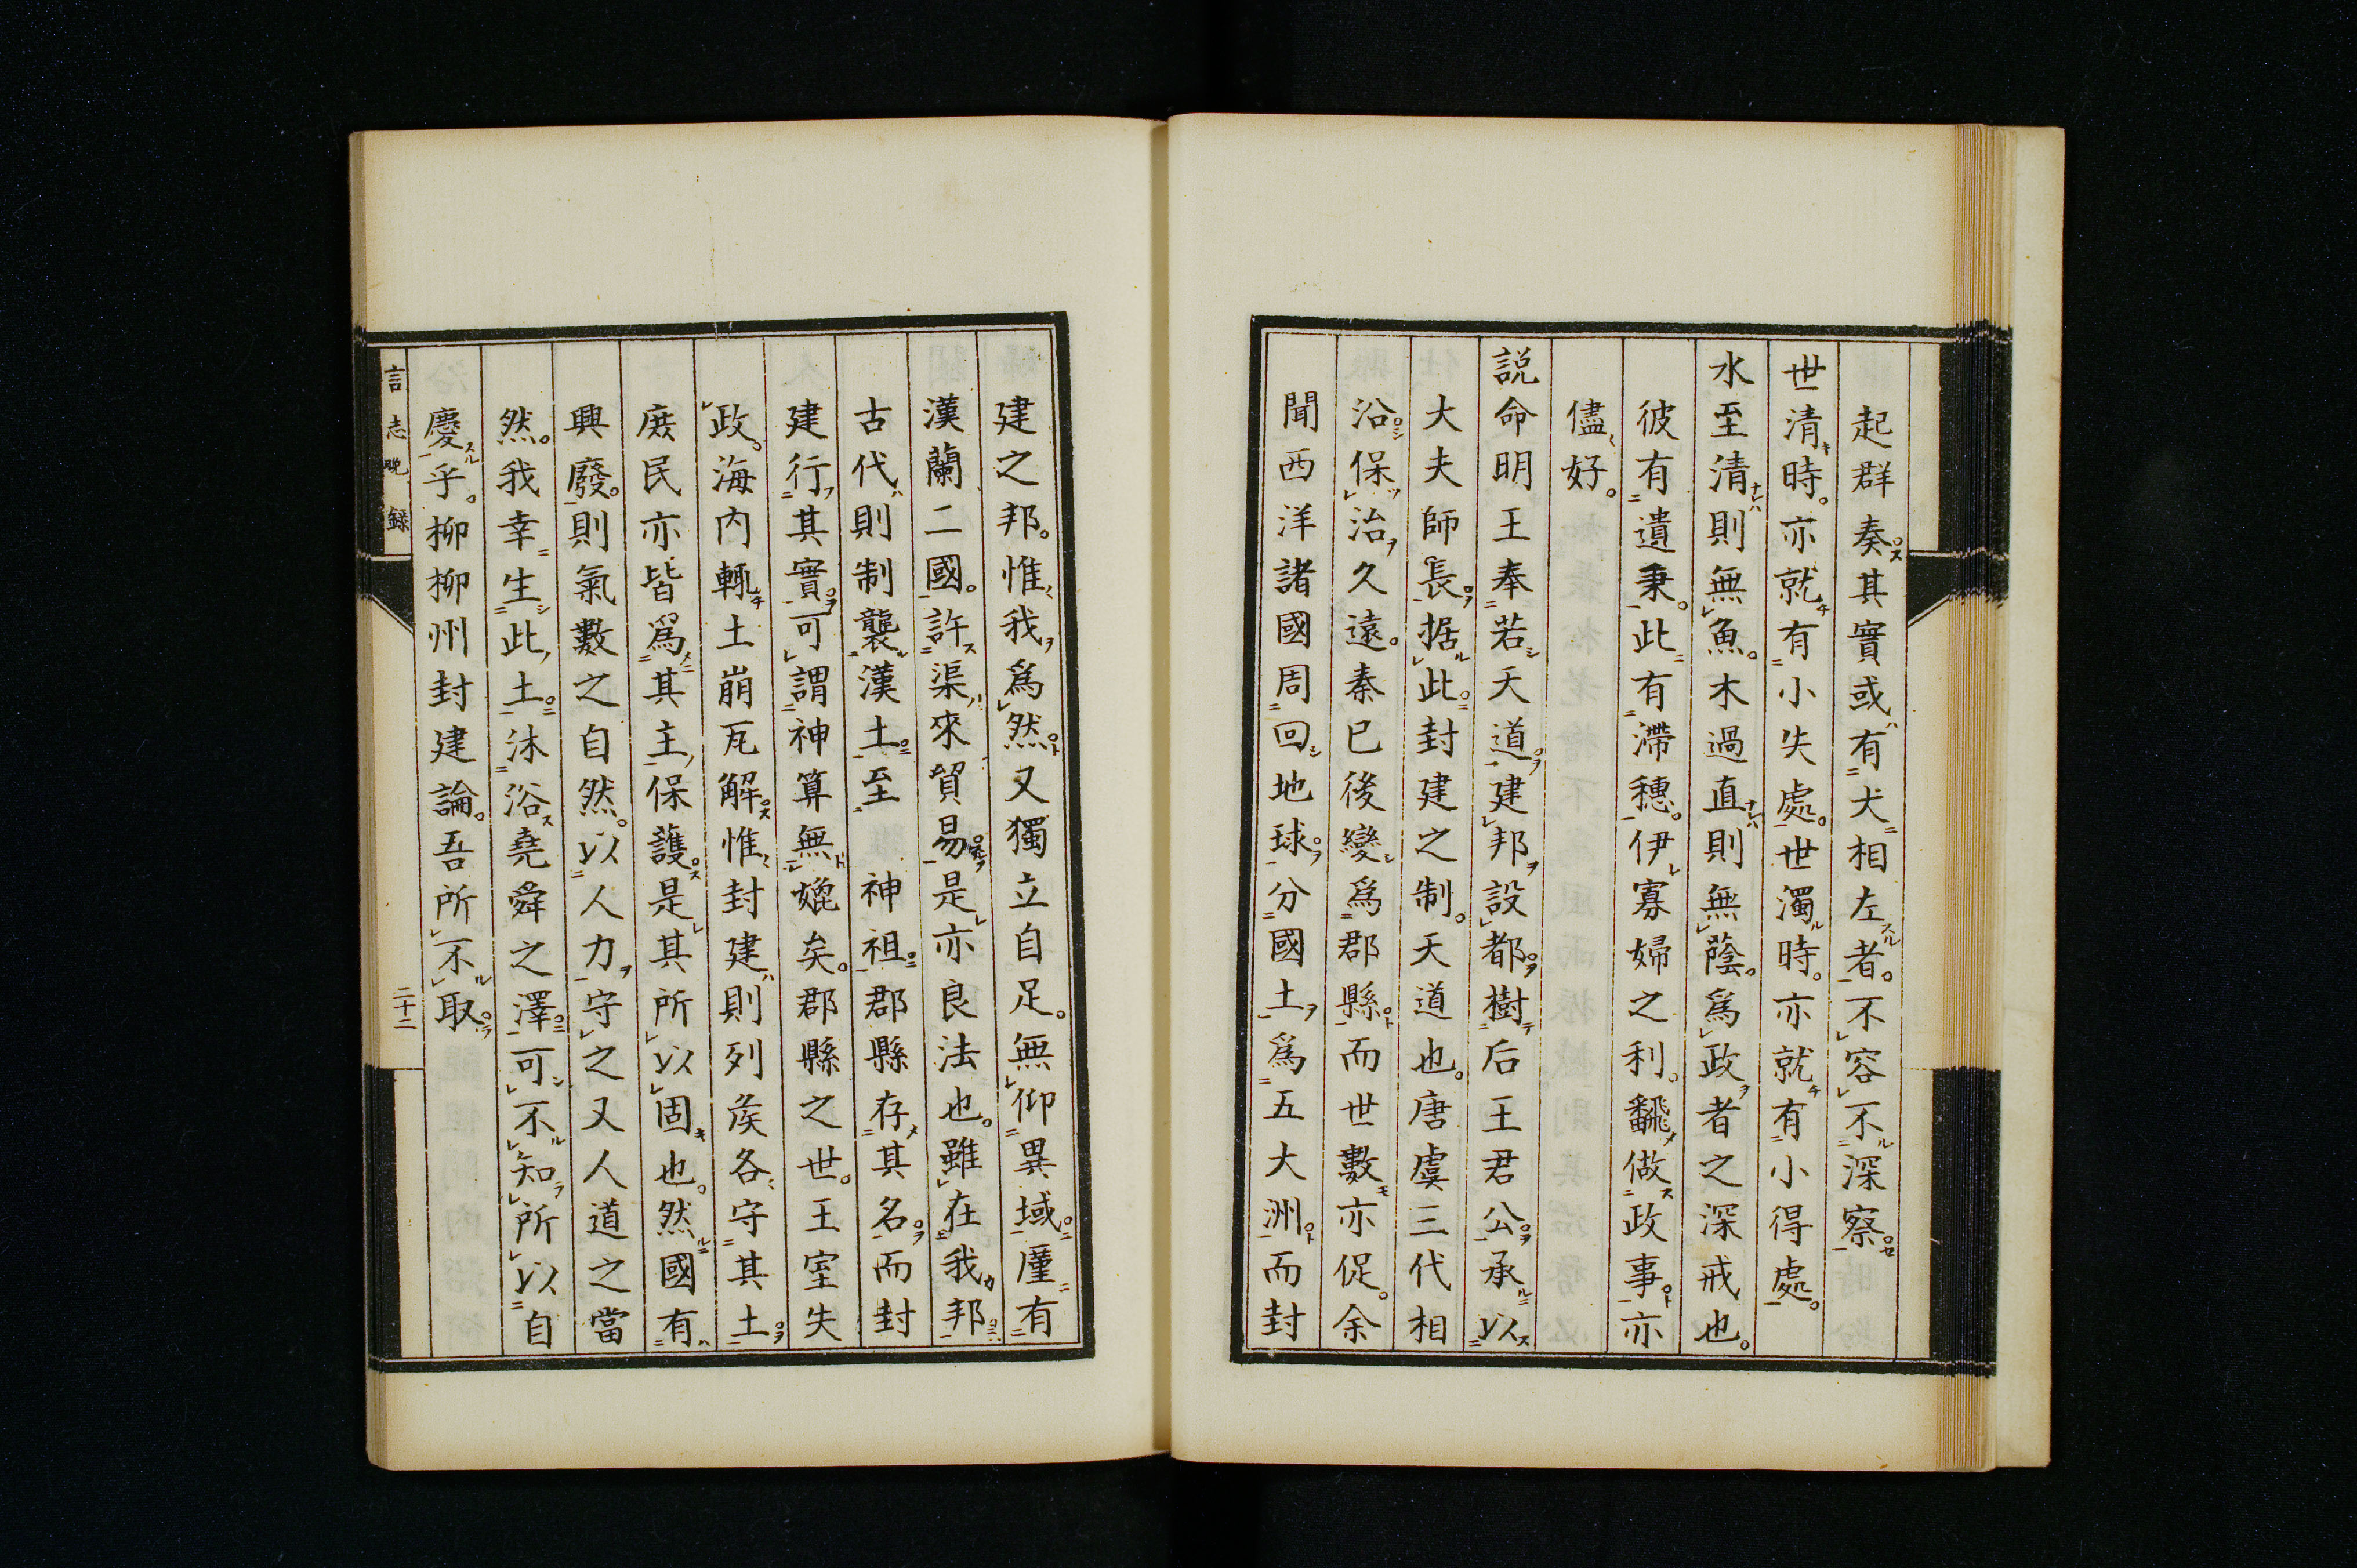 起群奏其實或有犬相左者。不容不深察
世清時。亦就有小失處。世濁時。亦就有小得處。
水至清則無魚。木過直則無蔭。爲政者之深戒也。
彼有遺秉。此有滯穗。伊寡婦之利。飜做政事亦
儘好。
説命明王奉若天道建邦設都樹后王君公承以
大夫師長据此封建之制。天道也。唐虞三代相
沿保治久遠。秦已後變爲郡縣而世數亦促。余
聞西洋諸國周回地球分國土爲五大洲而封
建之邦。惟我爲然又獨立自足。無仰異域廑有
漢蘭二國。許渠來貿易是亦良法也。雖在我邦
古代則制襲漢土至　神祖郡縣存其名而封
建行其實可謂神算無㜸矣。郡縣之世。王室失
政。海内輒土崩瓦解惟封建則列矦各守其土
庶民亦皆爲其主保護是其所以固也。然國有
興廢。則氣數之自然。以人力守之又人道之當
然。我幸生此土沐浴堯舜之澤可不知所以自
慶乎。柳柳州封建論。吾所不取
言志晩錄
二十二